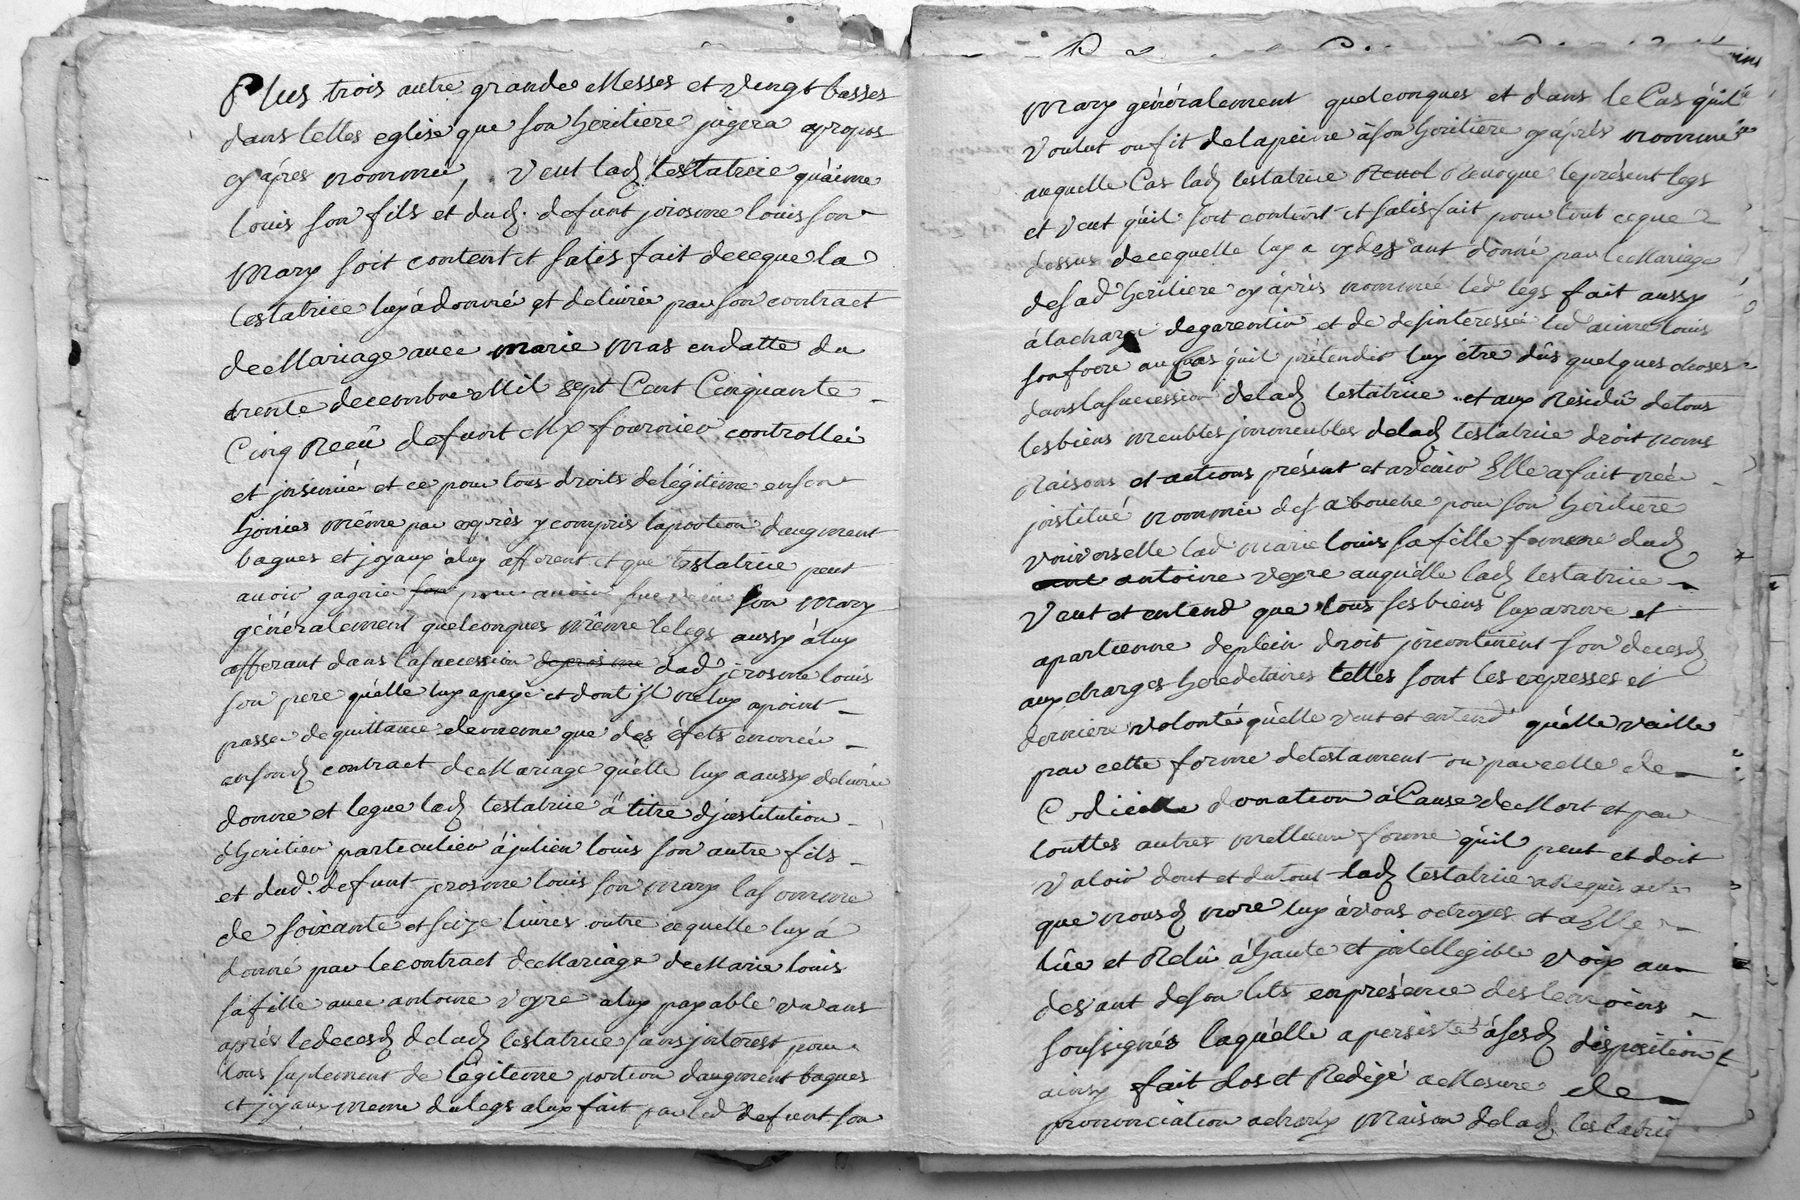 Plus trois autre grande Messes et vingt basses
dans telles eglise que son heritiere jugera apropos
cy àprés nommée, veut lad testatrice qu'aime
louis son fils et dud. defunt jerosme louis son
Mary soit content et satis fait de ceque la
testatrice luy à donné et delivré par son contract
de Mariage avec marie mas en datte du
trente decembre Mil sept Cent Cinquante
Cinq Receû defunt Me fournier controllé
et insinué et ce pour tous droits de légitime
même par exprès y compris la portion daugment
bagues et joyaux à luy afferent et que testatrice peut
avoir gagnée son Mary
généralement quelconques même le legs aussy à luy
afferant dans la succession dud jerosme louis
son pere qu'elle luy a payé et dont il ne luy a point
passé de quittance de meme que des éfets énoncés
en sond contract de Mariage qu'elle luy a aussy delivré
donne et legue lad testatrice à titre d'institution
d'heritier particulier à julien louis son autre fils
et dud. defunt jerosme louis son mary la somme
de soixante et seize livres outre ce quelle luy à
donné par le contract de Mariage de Marie louis
sa fille avec antoine veyre a luy payable un ans
après le decesd de lad testatrice sans interest pour
tous suplement de légitime portion daugment bagues
et joyaux meme du legs a luy fait par led defunt son
Mary généralement quelconques et dans le Cas qu'il
voulut ou fit de la peine à son heritiere cy àprés nommée
auquelle Cas lad testatrice Revoque le présent legs
et veut qu'il soit content et satis fait pour tout ce que
dessus de ce quelle luy a cy devant donné par le Mariage
de sad heritiere cy àprés nommée led legs fait aussy
à la charge de garentir et de desinteressé led aime louis
son frere au Cas qu'il prétendit luy être dûs quelques choses
dans la succession de lad testatrice et aux Residû de tous
les biens meubles immeubles de lad testatrice droit noms
Raisons et actions présent et avenir Elle a fait créé
institué nommée de sa bouche pour son heritiere
universelle lad marie louis sa fille femme dud
antoine veyre auquelle lad testatrice
veut et entend que tous ses biens luy et
apartienne de plein droit incontinent son decesd
aux charges heredetaires telles sont les expresses et
derniere volonté qu'elle veut et entend qu'elle vaille
par cette forme de testament ou par celle de
Codicille donation à Cause de Mort et par
touttes autres meilleure forme qu'il peut et doit
valoir dont et du tout lad testatrice a Requis acte
que nousd nore luy avons octroyes et a Elle
lûe et Relû à haute et intellegible voix au
devant de son lits en présence des temoins
soussignés laquelle a persisté à sesd disposition
ainsy fait clos et Redigé a Mesure de
prononciation maison de lad testatrice